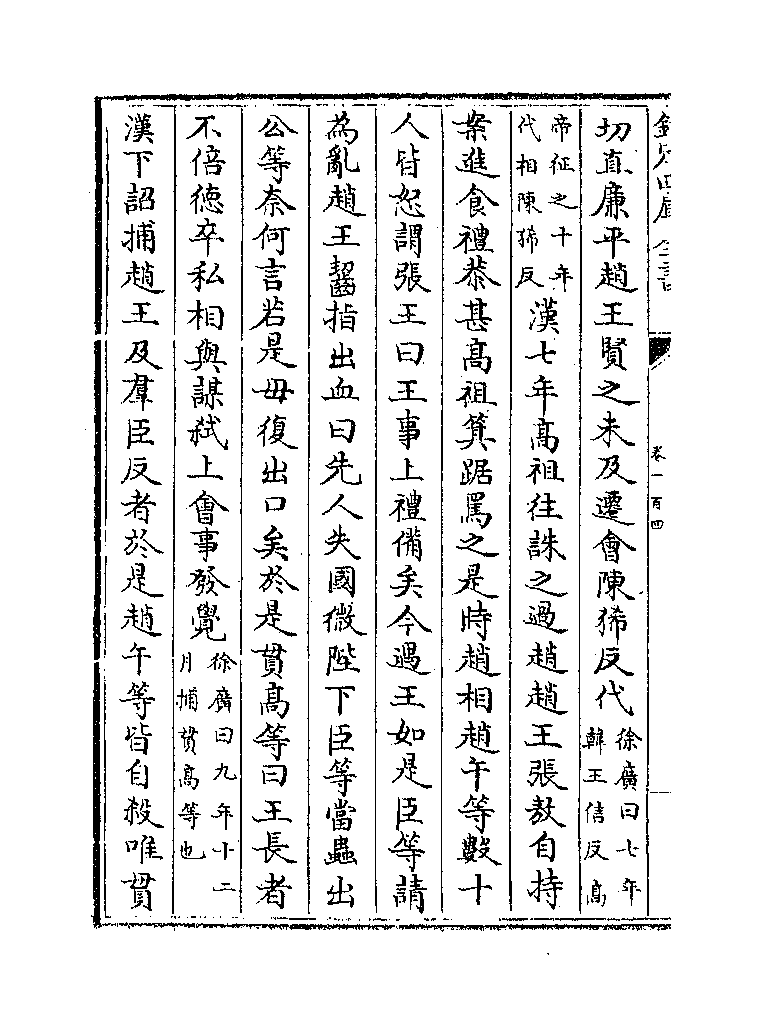 欽定四庫全書
卷一百四
切直廉平趙王賢之未及遷會陳豨反代徐廣曰七年韓王信反高
帝征之十年代相陳豨反漢七年高祖往誅之過趙趙王張敖自持
案進食禮恭甚高祖箕踞罵之是時趙相趙午等數十
人皆怒謂張王曰王事上禮備矣今遇王如是臣等請
為亂趙王齧指出血曰先人失國微陛下臣等當蟲出
公等奈何言若是毋復出口矣於是貫高等曰王長者
不倍德卒私相與謀弑上會事發覺徐廣曰九年十二月捕貫高等也
漢下詔捕趙王及羣臣反者於是趙午等皆自殺唯貫